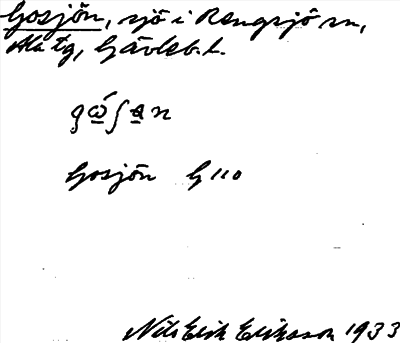 Gosjön, sjö i Rengsjö sn,
Ala tg, Gävleb. l.
Gosjön G 110
Nils Erik Eriksson 1933